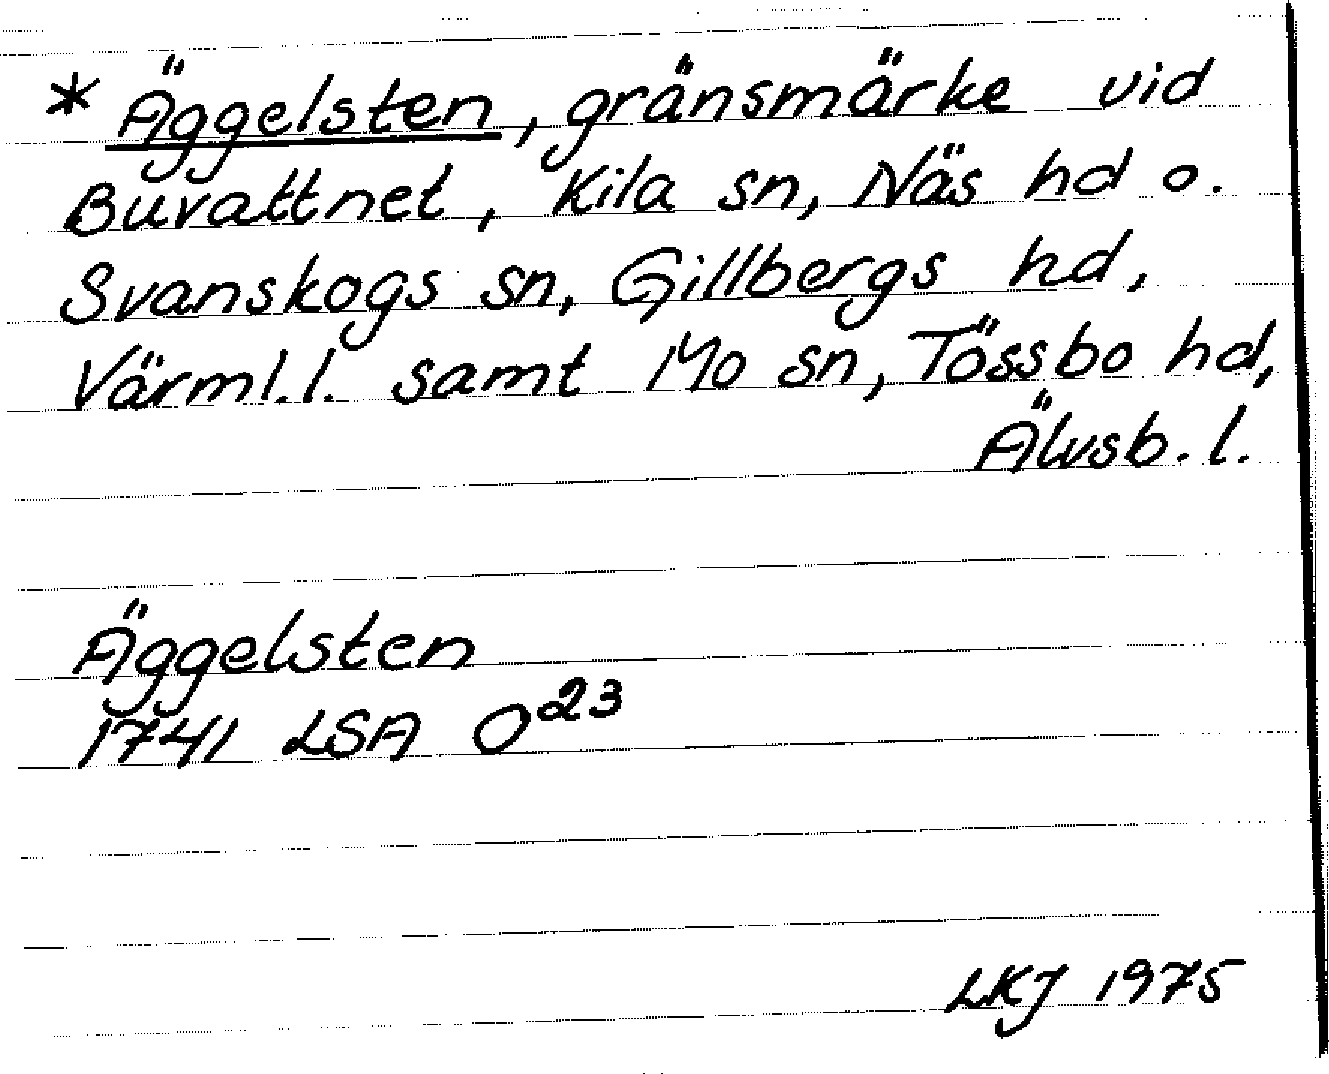 * Äggelsten, gränsmärke vid
Buvattnet, Kila sn, Näs hd o.
Svanskogs sn, Gillbergs hd,
Värml.l. samt Mo sn, Tössbo hd,
Älvsb.l.
Äggelsten
1741 LSA O²³
LKJ 1975